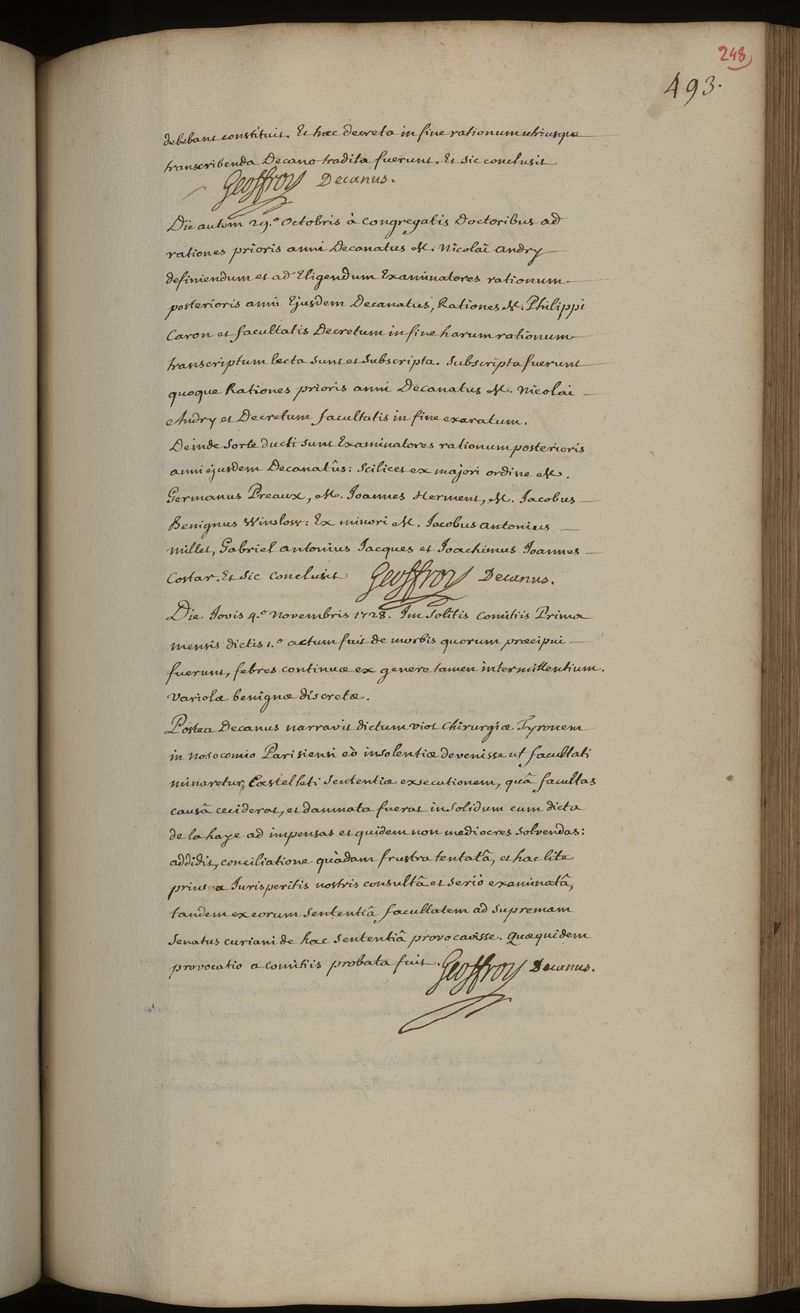 248
493.
debebant constituit. Et hæc decreta in fine rationum utriusque
transcribenda Decano tradita fuerunt. Et sic conclusit.
Geoffroy Decanus.
Die autem 29.ª Octobris à Congregatis Doctoribus ad
rationes prioris anni Decanatus M. Nicolai Andry
definiendum et ad Eligendum Examinatores rationum
posterioris anni Ejusdem Decanatus, Rationes M. Philippi
Caron et facultatis Decretum in fine harum rationum
transcriptum lecta sunt et subscripta. Subscripta fuerunt
quoque Rationes prioris anni Decanatus M. Nicolai
Andry et Decretum facultatis in fine exaratum.
Deinde Sorte ducti sunt Examinatores rationum posterioris
anni ejusdem Decanatûs: Scilicet ex majori ordine M.
Germanus Preaux, M. Joannes Herment, M. Jacobus
Benignus Winslow: Ex minori M. Jacobus Antonius
Millet, Gabriel Antonius Jacques et Joachimus Joannes
Costar. Et Sic Conclusit Geoffroy Decanus.
Die Jovis 4.ª Novembris 1728. In Solitis Comitiis Prima
mensis dictis 1.º actum fuit de morbis quorum præcipui
fuerunt, febres continuæ ex genere tamen intermittentium.
Variolæ benignæ discretæ.
Postea Decanus narravit dictum Viot Chirurgiæ Tyronem
in nosocomio Parisiensi eò insolentiæ devenisse ut facultati
minaretur, Castelleti Sententiæ exsecutionem, quâ facultas
causâ ceciderat, et damnata fuerat in solidum cum dicto
de la haye ad impensas et quidem non mediocres solvendas:
addidit, conciliatione quâdam frustra tentatâ, et hac lite
prius a Jurisperitis nostris consultâ et seriò examinatâ,
tandem ex eorum Sententiâ facultatem ad Supremam
Senatus curiam de hac Sententiâ provocavisse. Quæ quidem
provocatio a comitiis probata fuit. Geoffroy Decanus.